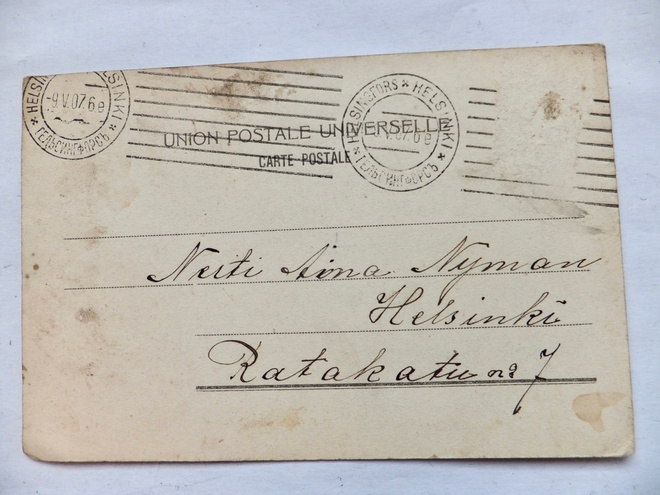 HELSINKI
-9.V.07.6e
ГЕЛЬСИНГФОРСЪ
HELSINGFORS * HELSINKI
V.07.6e
ГЕЛЬСИНГФОРСЪ
UNION POSTALE UNIVERSELLE
CARTE POSTALE
Neiti Aina Nyman
Helsinki
Ratakatu No 7